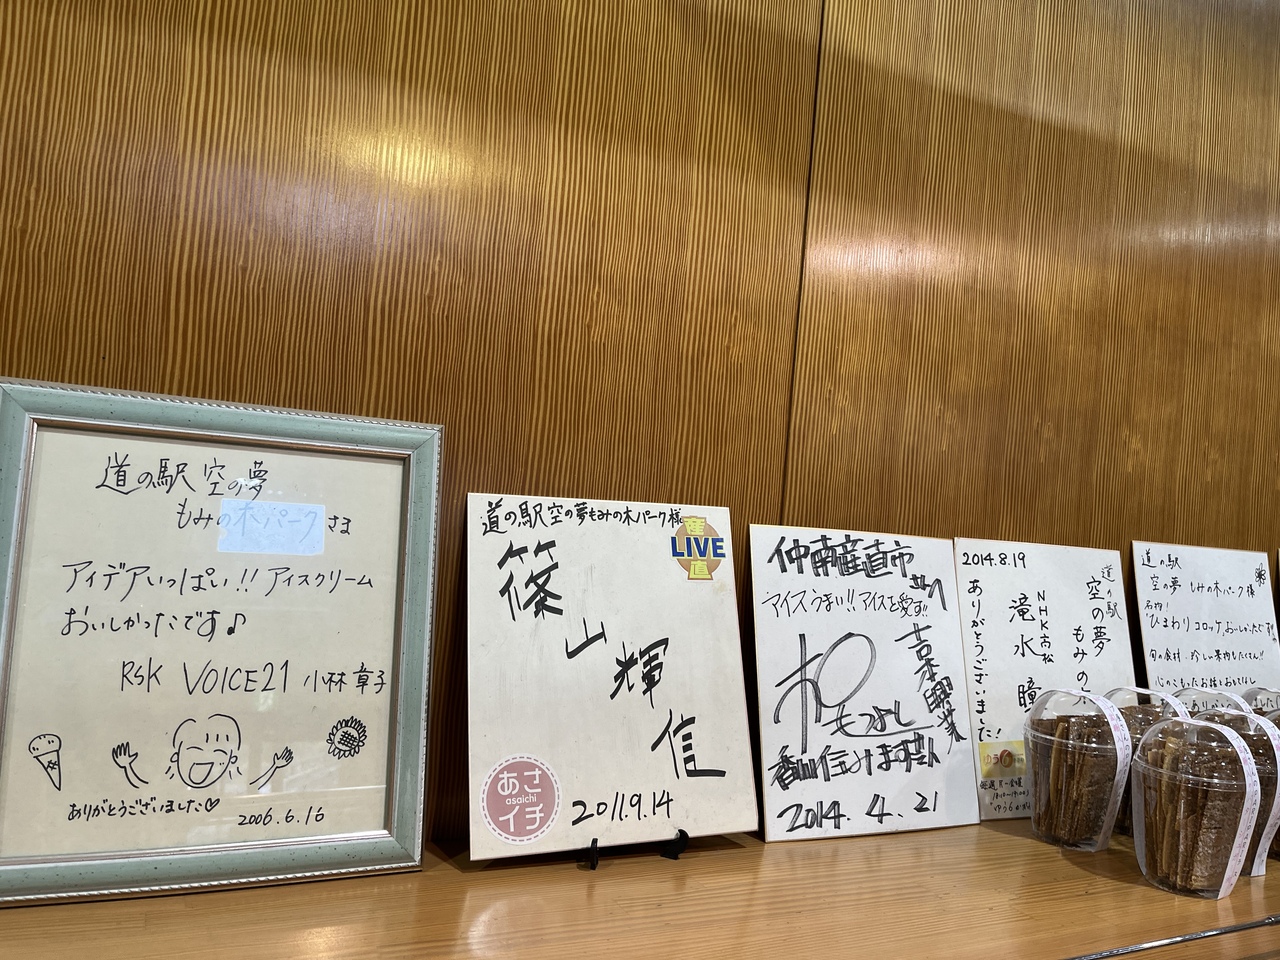 道の駅 空の夢
もみの木パーク さま
アイデアいっぱい!! アイスクリーム
おいしかったです♪
RSK VOICE21 小林 章子
ありがとうございました♡
2006.6.16
道の駅空の夢もみの木パーク様
産
LIVE
直
篠山輝信
あさ
asaichi
イチ
2011.9.14
仲南産直市
アイスうまい!! アイスを愛す!!
吉本興業
もつよし
香川住みますさん
2014. 4. 21
2014.8.19
道の駅
空の夢 もみの木
NHK高松
滝水 瞳
ありがとうございました!
ゆう6
道の駅
空の夢 もみの木パーク様
名物!
ひまわりコロッケ,おいしかったです
旬の食材、珍しい果物もたくさん!!
心のこもったお話と
ありがとう